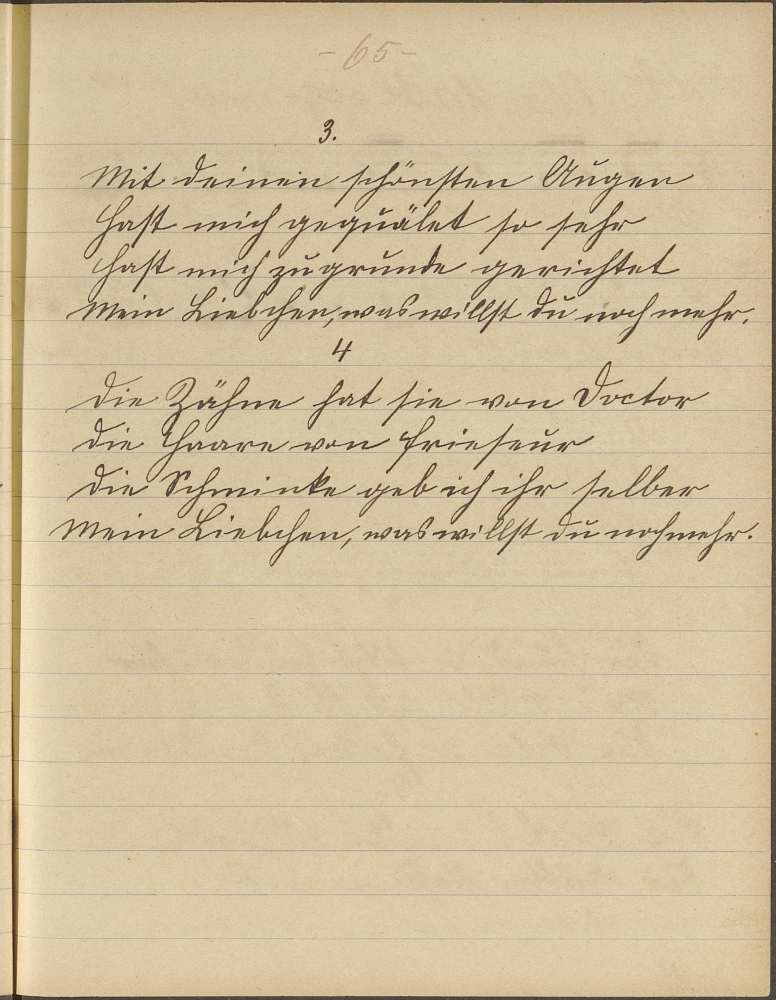 -65-
3.
Mit deinen schönsten Augen
Hast mich gequälet so sehr
hast mich zugrunde gerichtet
Mein Liebchen, was willst du noch mehr.
4
Die Zähne hat sie von Doctor
die Haare von Frieseur
die Schminke geb ich ihr selber
Mein Liebchen, was willst du noch mehr.